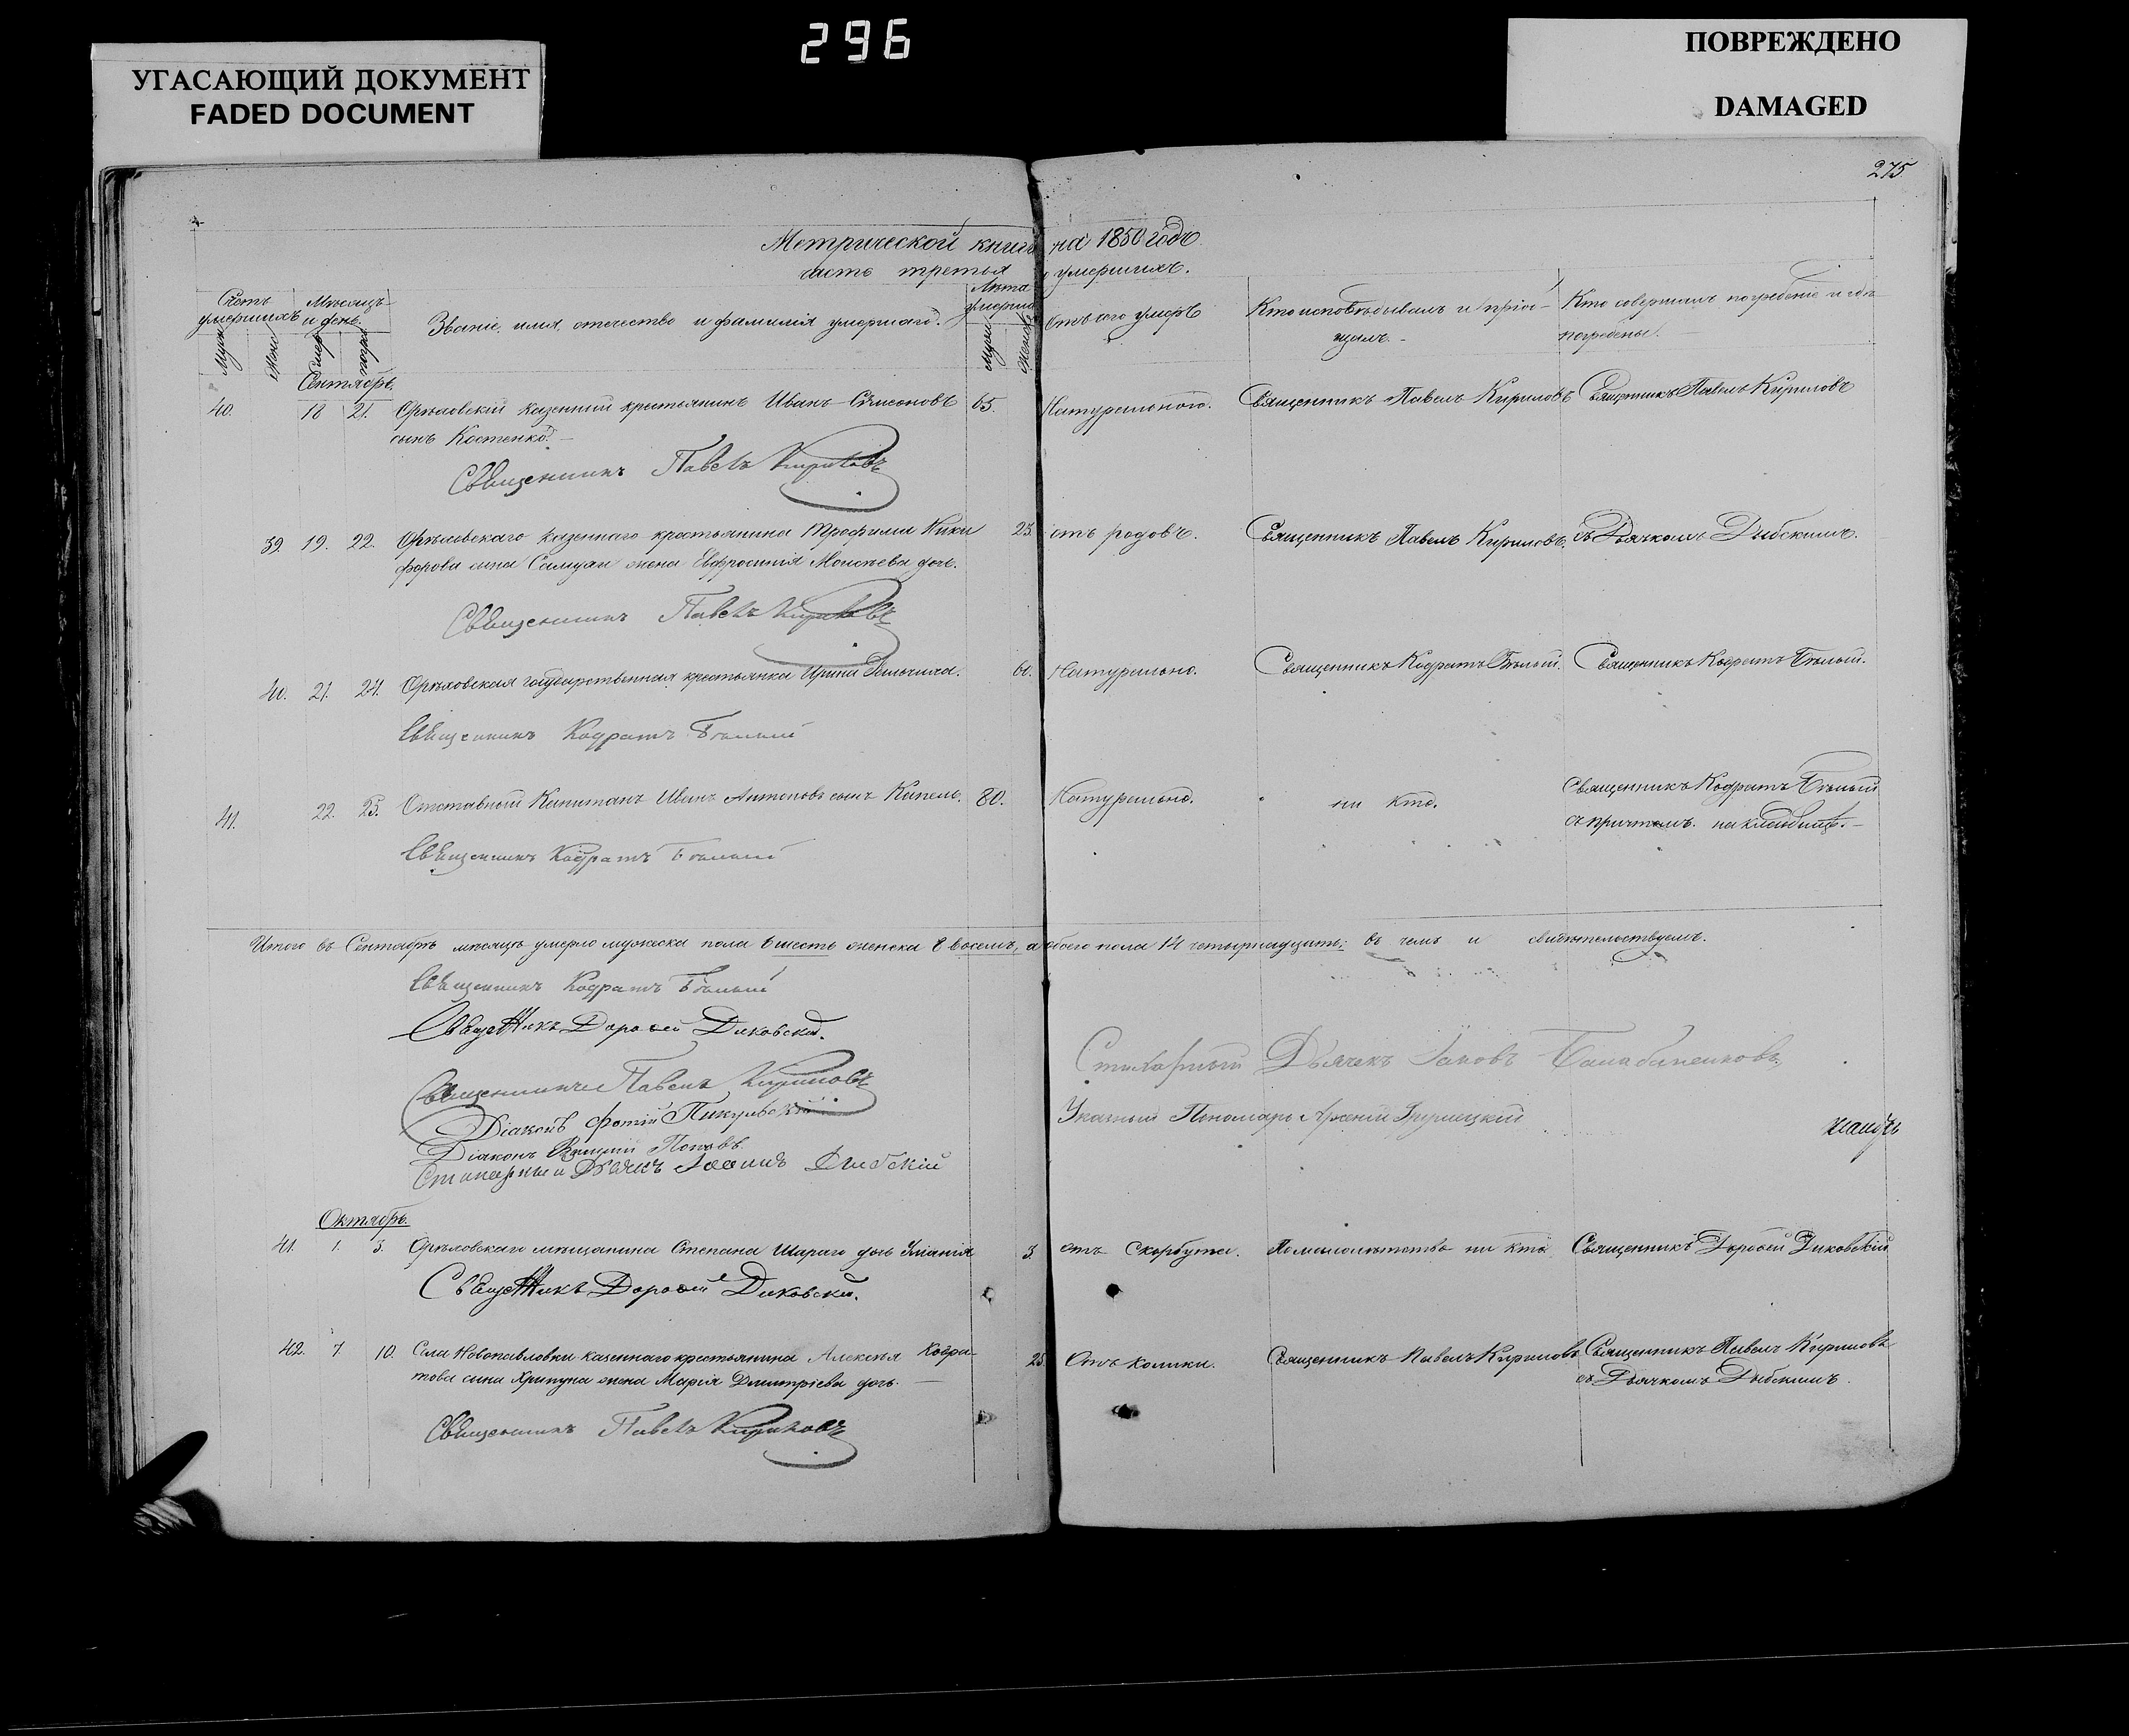 296
УГАСАЮЩИЙ ДОКУМЕНТ
FADED DOCUMENT
ПОВРЕЖДЕНО
DAMAGED
275
Метрической книги на 1850 годъ
часть третья умершихъ.
Счетъ умершихъ
Мѣсяцъ и день.
Званіе, имя, отечество и фамилія умершаго.
Лѣта умершаго
Отъ чего умеръ
Кто исповѣдывалъ и пріобщалъ.
Кто совершалъ погребеніе и гдѣ погребены.
Сентябрь.
40. 18 21. Орѣховскій казенный крестьянинъ Иванъ 65. Натурального. Священникъ Павелъ Кириловъ Священникъ Павелъ Кириловъ
сынъ Костенко.
Священникъ Павелъ Кириловъ
39. 19. 22. Орѣховскаго казеннаго крестьянина Трофима Ники 23. отъ родовъ. Священникъ Павелъ Кириловъ. съ Дьячкомъ Дыбскимъ.
форова сына жена Евфросинія Моисѣева дочь.
Священникъ Павелъ Кириловъ
40. 21. 24. Орѣховская государственная крестьянка Ирина 60. Натурально. Священникъ Кодратъ Бѣлый. Священникъ Кодратъ Бѣлый.
Священникъ Кодратъ Бѣлый
41. 22. 25. Отставный Капитанъ Иванъ Антоновъ сынъ Капель. 80. Натурально. ни кто. Священникъ Кодратъ Бѣлый
съ причтомъ. на кладбищѣ.
Священникъ Кодратъ Бѣлый
Итого въ Сентябрѣ мѣсяцѣ умерло мужеска пола 6 шесть женска 8 восемь, а обоего пола 14 четырнадцать; въ чемъ и свидѣтельствуемъ.
Священникъ Кодратъ Бѣлый
Священникъ Дороѳей Диковскій.
Священникъ Павелъ Кириловъ
Діаконъ Фотій
Діаконъ Поповъ
Стихарный Дьячекъ Іоаннъ Дыбскій
Стихарный Дьячекъ Іаковъ
Указный Пономарь Арсеній
Октябрь.
41. 1. 3. Орѣховскаго мѣщанина Степана Шараго дочь Уліанія 3. отъ Скорбута. По малолѣтству ни кто Священникъ Дороѳей Диковскій
Священникъ Дороѳей Диковскій.
42. 7 10. Села Новопавловки казеннаго крестьянина Алексѣя Кодра- 25 Отъ колики. Священникъ Павелъ Кириловъ Священникъ Павелъ Кириловъ
това сына Хрипуна жена Марія Димитріева дочь. съ Дьячкомъ Дыбскимъ.
Священникъ Павелъ Кириловъ